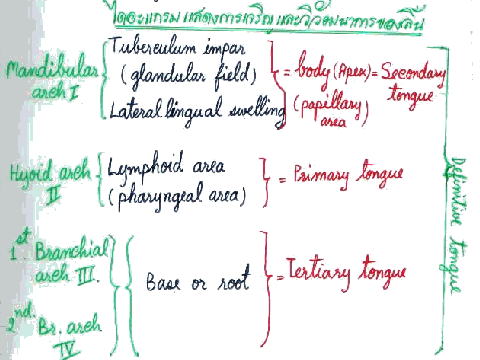 ไดอะแกรมแสดงการเจริญและวิวัฒนาการของลิ้น
Mandibular arch I
Tuberculum impar
(glandular field)
Lateral lingual swelling
= body (Apex) = Secondary tongue
(papillary area)
Hyoid arch II
Lymphoid area
(pharyngeal area)
= Primary tongue
1st Branchial arch III.
2nd. Br. arch IV
Base or root
= Tertiary tongue
Definitive tongue